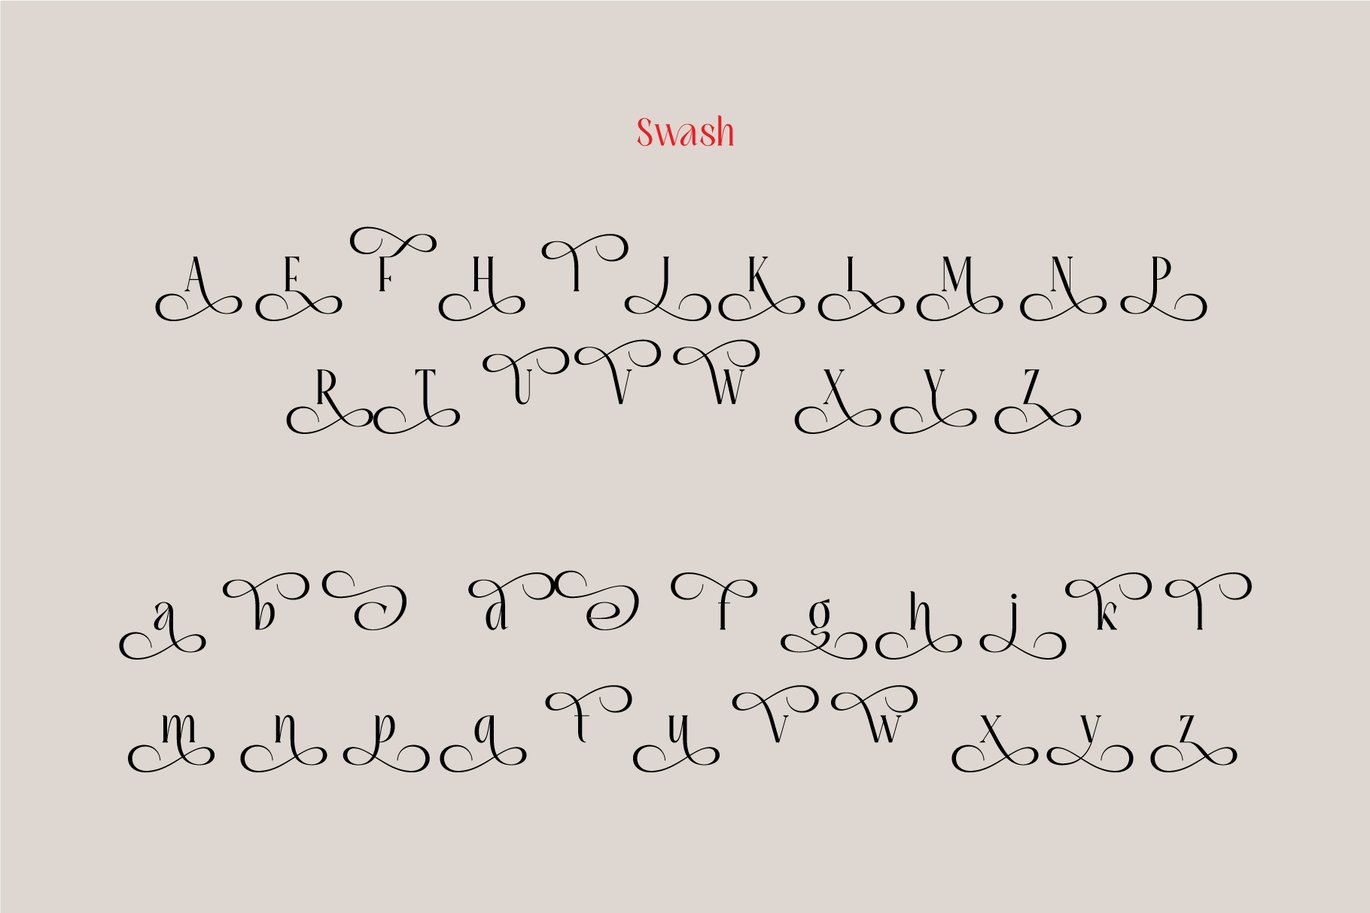 Swash
A E F H I J K L M N P
R T U V W X Y Z
a b c d e f g h j k l
m n p q t u v w x y z